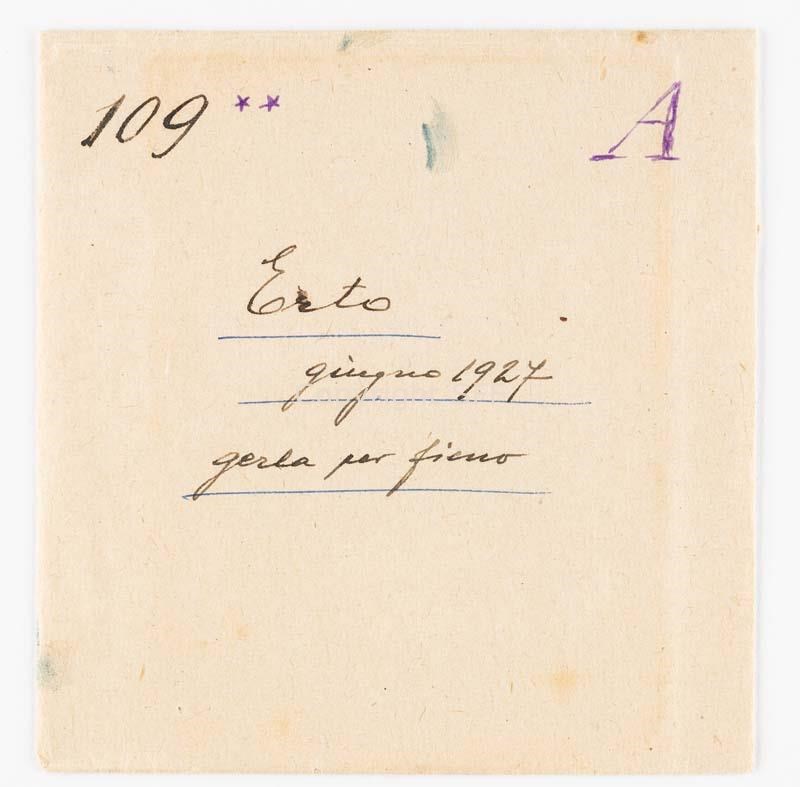 109 ** A
Erto
giugno 1927
gerla per fieno